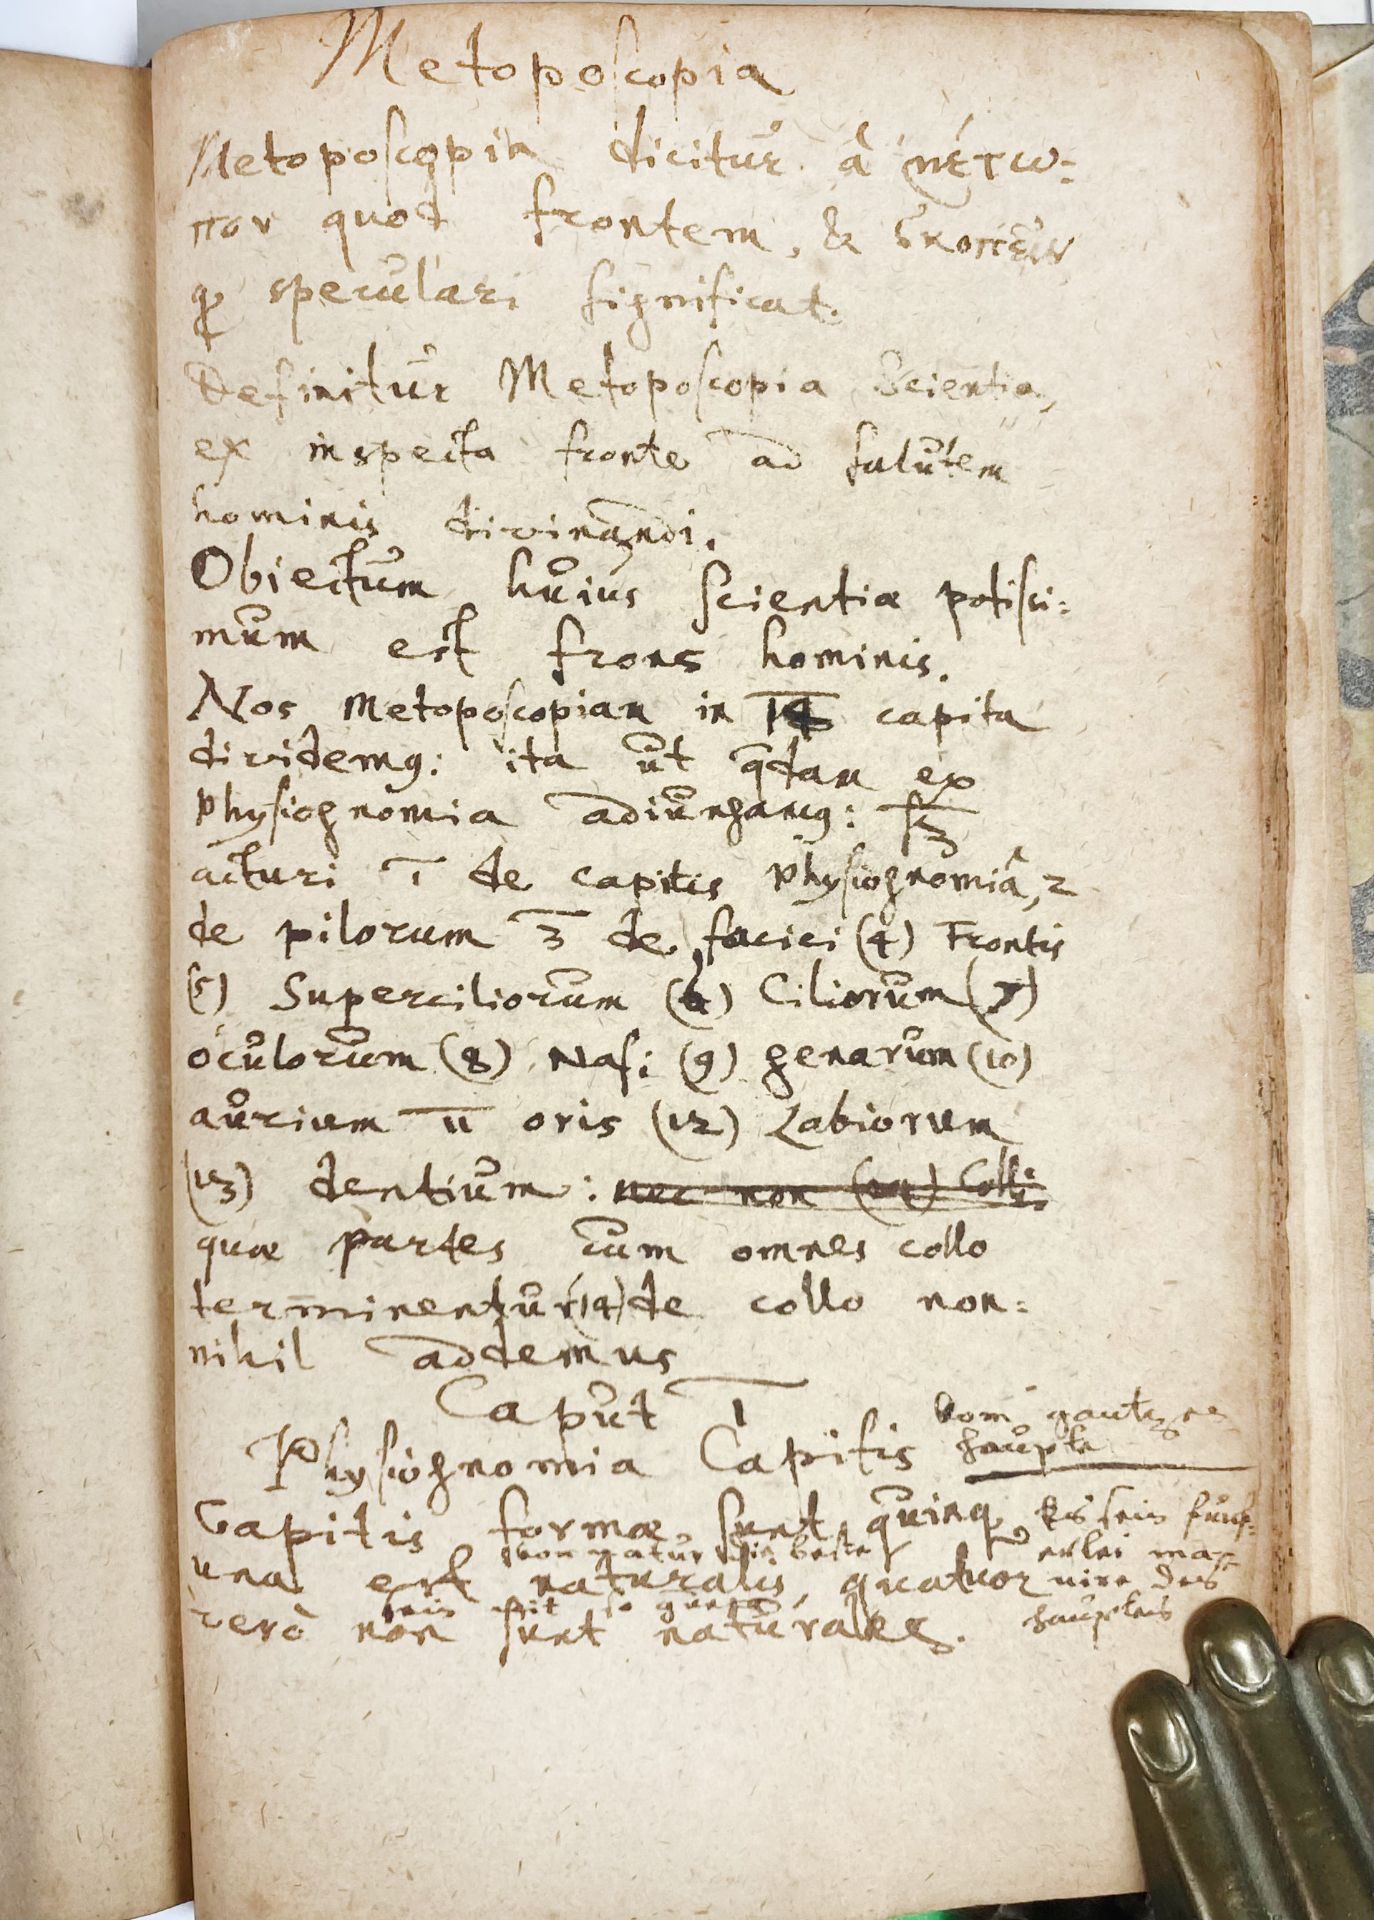 Metoposcopia
Metoposcopia dicitur à μέτω:
πον quod frontem, & σκοπεῖν
qd speculari significat.
Definitur Metoposcopia Scientia,
ex inspecta fronte ad salutem
hominis divinandi.
Obiectum huius scientiæ potissi:
mum est frons hominis.
Nos Metoposcopiam in 14 capita
dividemq: ita ut qdam ex
physiognomia adiungamq:
acturi 1 de capitis physiognomiâ, 2
de pilorum 3 de faciei (4) Frontis
(5) Superciliorum (6) Ciliorum (7)
oculorum (8) Nasi (9) genarum (10)
aurium 11 oris (12) Labiorum
(13) dentium: nec non (14) Colli
quæ partes cum omnes collo
terminentur (14) de collo non:
nihil addemus
Caput 1
Physiognomia Capitis
Vom gantzen
haupte
Capitis formæ sunt quinq
una est naturalis, quatuor
vero non sunt naturales.
Es sein funf:
erlei ma:
nire des
haupteis
von natur die beste
sein nit so